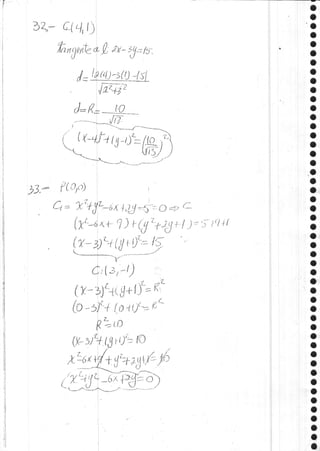 32,- C(4,1)
tangente a l 2x-3y=15.
d= |2(4)-3(1)-15| / √2²+3²
d=R= 10 / √13
(x-4)²+(y-1)²=(10/√13)²
33.- P(0,0)
C₁= x²+y²-6x+2y-5=0 ⇔ C
(x²-6x+9)+(y²+2y+1)=5+9+1
(x-3)²+(y+1)²=15
C:(3,-1)
(x-3)²+(y+1)²=R²
(0-3)²+(0+1)²=R²
R²=10
(x-3)²+(y+1)²=10
x²-6x+9+y²+2y+1=10
x²+y²-6x+2y=0